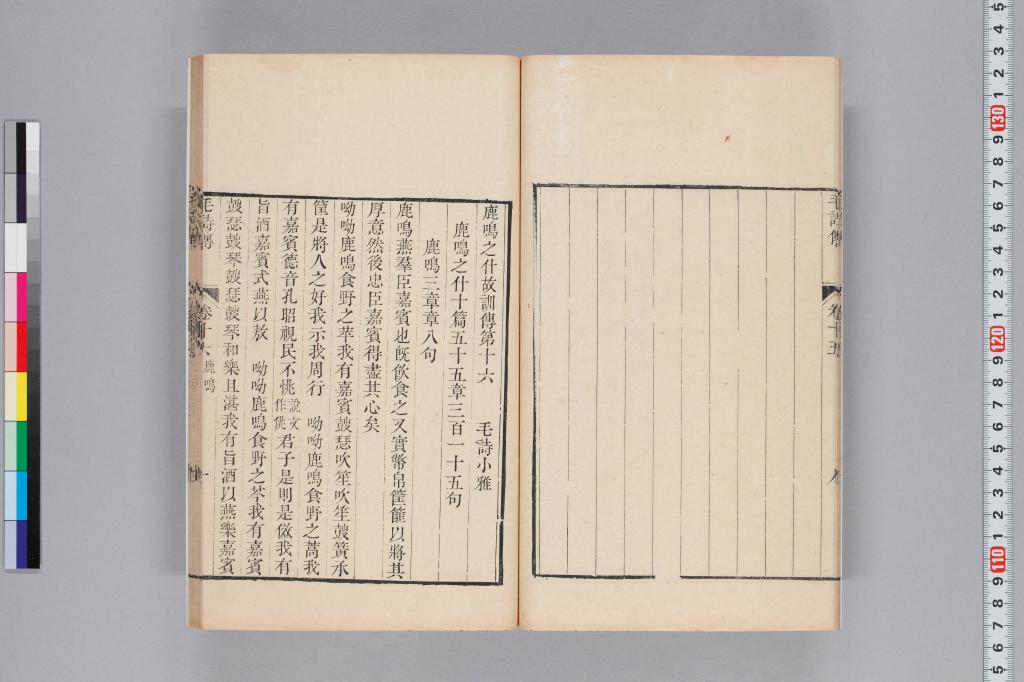 毛詩傳 卷十五
鹿鳴之什故訓傳第十六 毛詩小雅
鹿鳴之什十篇五十五章三百一十五句
鹿鳴三章章八句
鹿鳴燕羣臣嘉賓也旣飲食之又實幣帛筐篚以將其
厚意然後忠臣嘉賓得盡其心矣
呦呦鹿鳴食野之苹我有嘉賓鼓瑟吹笙吹笙鼓簧承
筐是將人之好我示我周行 呦呦鹿鳴食野之蒿我
有嘉賓德音孔昭視民不恌說文作佻君子是則是傚我有
旨酒嘉賓式燕以敖 呦呦鹿鳴食野之芩我有嘉賓
鼓瑟鼓琴鼓瑟鼓琴和樂且湛我有旨酒以燕樂嘉賓
毛詩傳 卷十六 鹿鳴 一
130
120
110